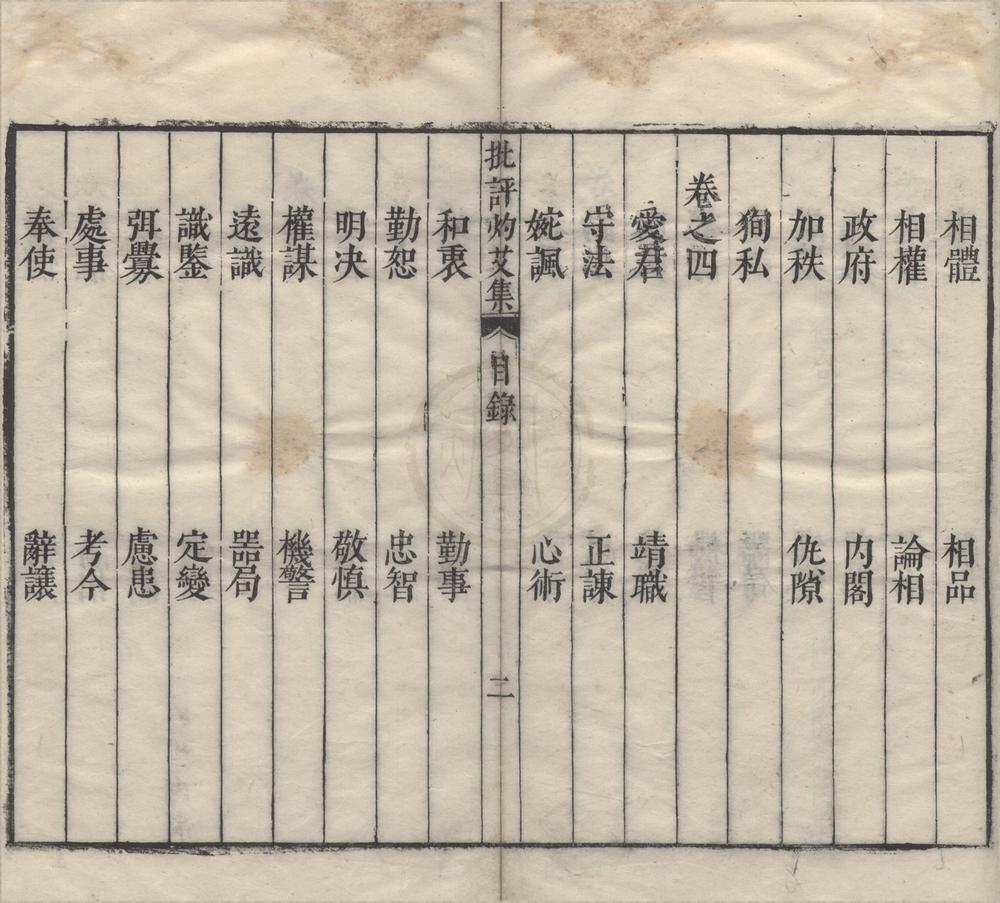 相體　相品
相權　論相
政府　內閣
加秩　仇隙
狥私
卷之四
愛君　靖職
守法　正諫
婉諷　心術
批評灼艾集　目錄　二
和衷　勤事
勤恕　忠智
明决　敬慎
權謀　機警
遠識　器局
識鑒　定變
弭釁　慮患
處事　考今
奉使　辭讓